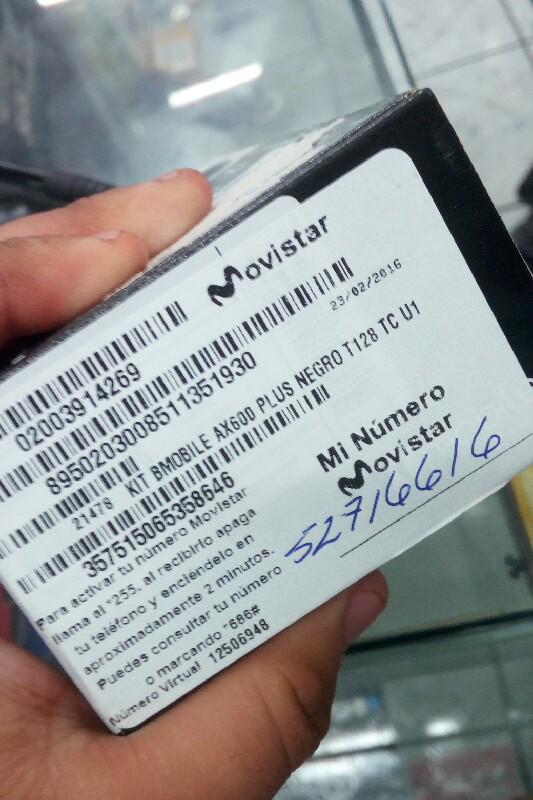 Movistar
23/02/2016
02003914269
8950203008511351930
21478 KIT BMOBILE AX600 PLUS NEGRO T128 TC U1
357515065358646
Para activar tu número Movistar
llama al *255, al recibirlo apaga
tu teléfono y enciéndelo en
aproximadamente 2 minutos.
Puedes consultar tu número
o marcando *686#
Número Virtual 12506948
Mi Número
Movistar
52716616